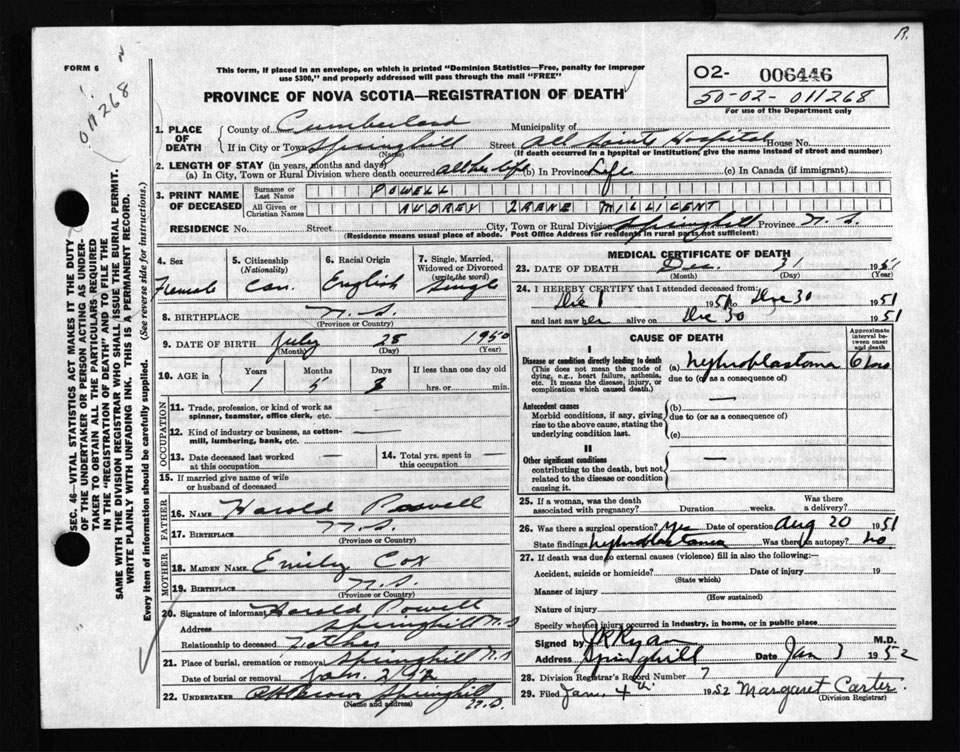 R.
FORM 6
011268
This form, if placed in an envelope, on which is printed "Dominion Statistics—Free, penalty for improper
use $300," and properly addressed will pass through the mail "FREE"
PROVINCE OF NOVA SCOTIA—REGISTRATION OF DEATH
02- 006446
50-02-011268
For use of the Department only
1. PLACE OF DEATH
County of Cumberland Municipality of
If in City or Town Springhill Street All Saints Hospital House No.
(Name) (If death occurred in a hospital or institution, give name instead of street and number)
2. LENGTH OF STAY (in years, months and days)
(a) In City, Town or Rural Division where death occurred all her life (b) In Province Life (c) In Canada (if immigrant)
3. PRINT NAME OF DECEASED
Surname or Last Name POWELL
All Given or Christian Names AUDREY IRENE MILLICENT
RESIDENCE No. Street City, Town or Rural Division Springhill Province N.S.
(Residence means usual place of abode. Post Office Address for residents in rural parts not sufficient)
4. Sex Female
5. Citizenship (Nationality) Can.
6. Racial Origin English
7. Single, Married, Widowed or Divorced (write the word) Single
8. BIRTHPLACE N.S.
(Province or Country)
9. DATE OF BIRTH July 28 1950
(Month) (Day) (Year)
10. AGE in Years Months Days If less than one day old
1 5 3 hrs. or min.
OCCUPATION
11. Trade, profession, or kind of work as
spinner, teamster, office clerk, etc. —
12. Kind of industry or business, as cotton-
mill, lumbering, bank, etc. —
13. Date deceased last worked
at this occupation —
14. Total yrs. spent in
this occupation —
15. If married give name of wife
or husband of deceased
FATHER
16. NAME Harold Powell
17. BIRTHPLACE N.S.
(Province or Country)
MOTHER
18. MAIDEN NAME Emily Cox
19. BIRTHPLACE N.S.
(Province or Country)
20. Signature of informant Harold Powell
Address Springhill N.S
Relationship to deceased Father
21. Place of burial, cremation or removal Springhill N.S
Date of burial or removal Jan. 2/52
22. UNDERTAKER Brown Springhill
(Name and address) N.S.
MEDICAL CERTIFICATE OF DEATH
23. DATE OF DEATH Dec. 31 1951
(Month) (Day) (Year)
24. I HEREBY CERTIFY that I attended deceased from:
Dec 1 1951 to Dec 30 1951
and last saw her alive on Dec 30 1951
CAUSE OF DEATH
Approximate interval between onset and death
I
Disease or condition directly leading to death (a) nephroblastoma 6 mos
(This does not mean the mode of
dying, e.g., heart failure, asthenia,
etc. It means the disease, injury, or
complication which caused death.)
due to (or as a consequence of)
Antecedent causes (b) —
Morbid conditions, if any, giving
rise to the above cause, stating the
underlying condition last.
due to (or as a consequence of)
(c)
II
Other significant conditions —
contributing to the death, but not
related to the disease or condition
causing it.
25. If a woman, was the death
associated with pregnancy? Duration weeks. Was there
a delivery?
26. Was there a surgical operation? Yes Date of operation Aug 20 1951
State findings nephroblastoma Was there an autopsy? no
27. If death was due to external causes (violence) fill in also the following:—
Accident, suicide or homicide? Date of injury 19
(State which)
Manner of injury
(How sustained)
Nature of injury
Specify whether injury occurred in industry, in home, or in public place
Signed by J R Ryan M.D.
Address Springhill Date Jan 3 1952
28. Division Registrar's Record Number 7
29. Filed Jan. 4th 1952 Margaret Carter.
(Division Registrar)
SEC. 46—VITAL STATISTICS ACT MAKES IT THE DUTY
OF THE UNDERTAKER OR PERSON ACTING AS UNDER-
TAKER TO OBTAIN ALL THE PARTICULARS REQUIRED
IN THE "REGISTRATION OF DEATH" AND TO FILE THE
SAME WITH THE DIVISION REGISTRAR WHO SHALL ISSUE THE BURIAL PERMIT.
WRITE PLAINLY WITH UNFADING INK. THIS IS A PERMANENT RECORD.
Every item of information should be carefully supplied. (See reverse side for instructions.)